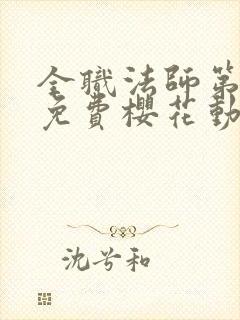 全職法師第
免費櫻花動
沈兮和